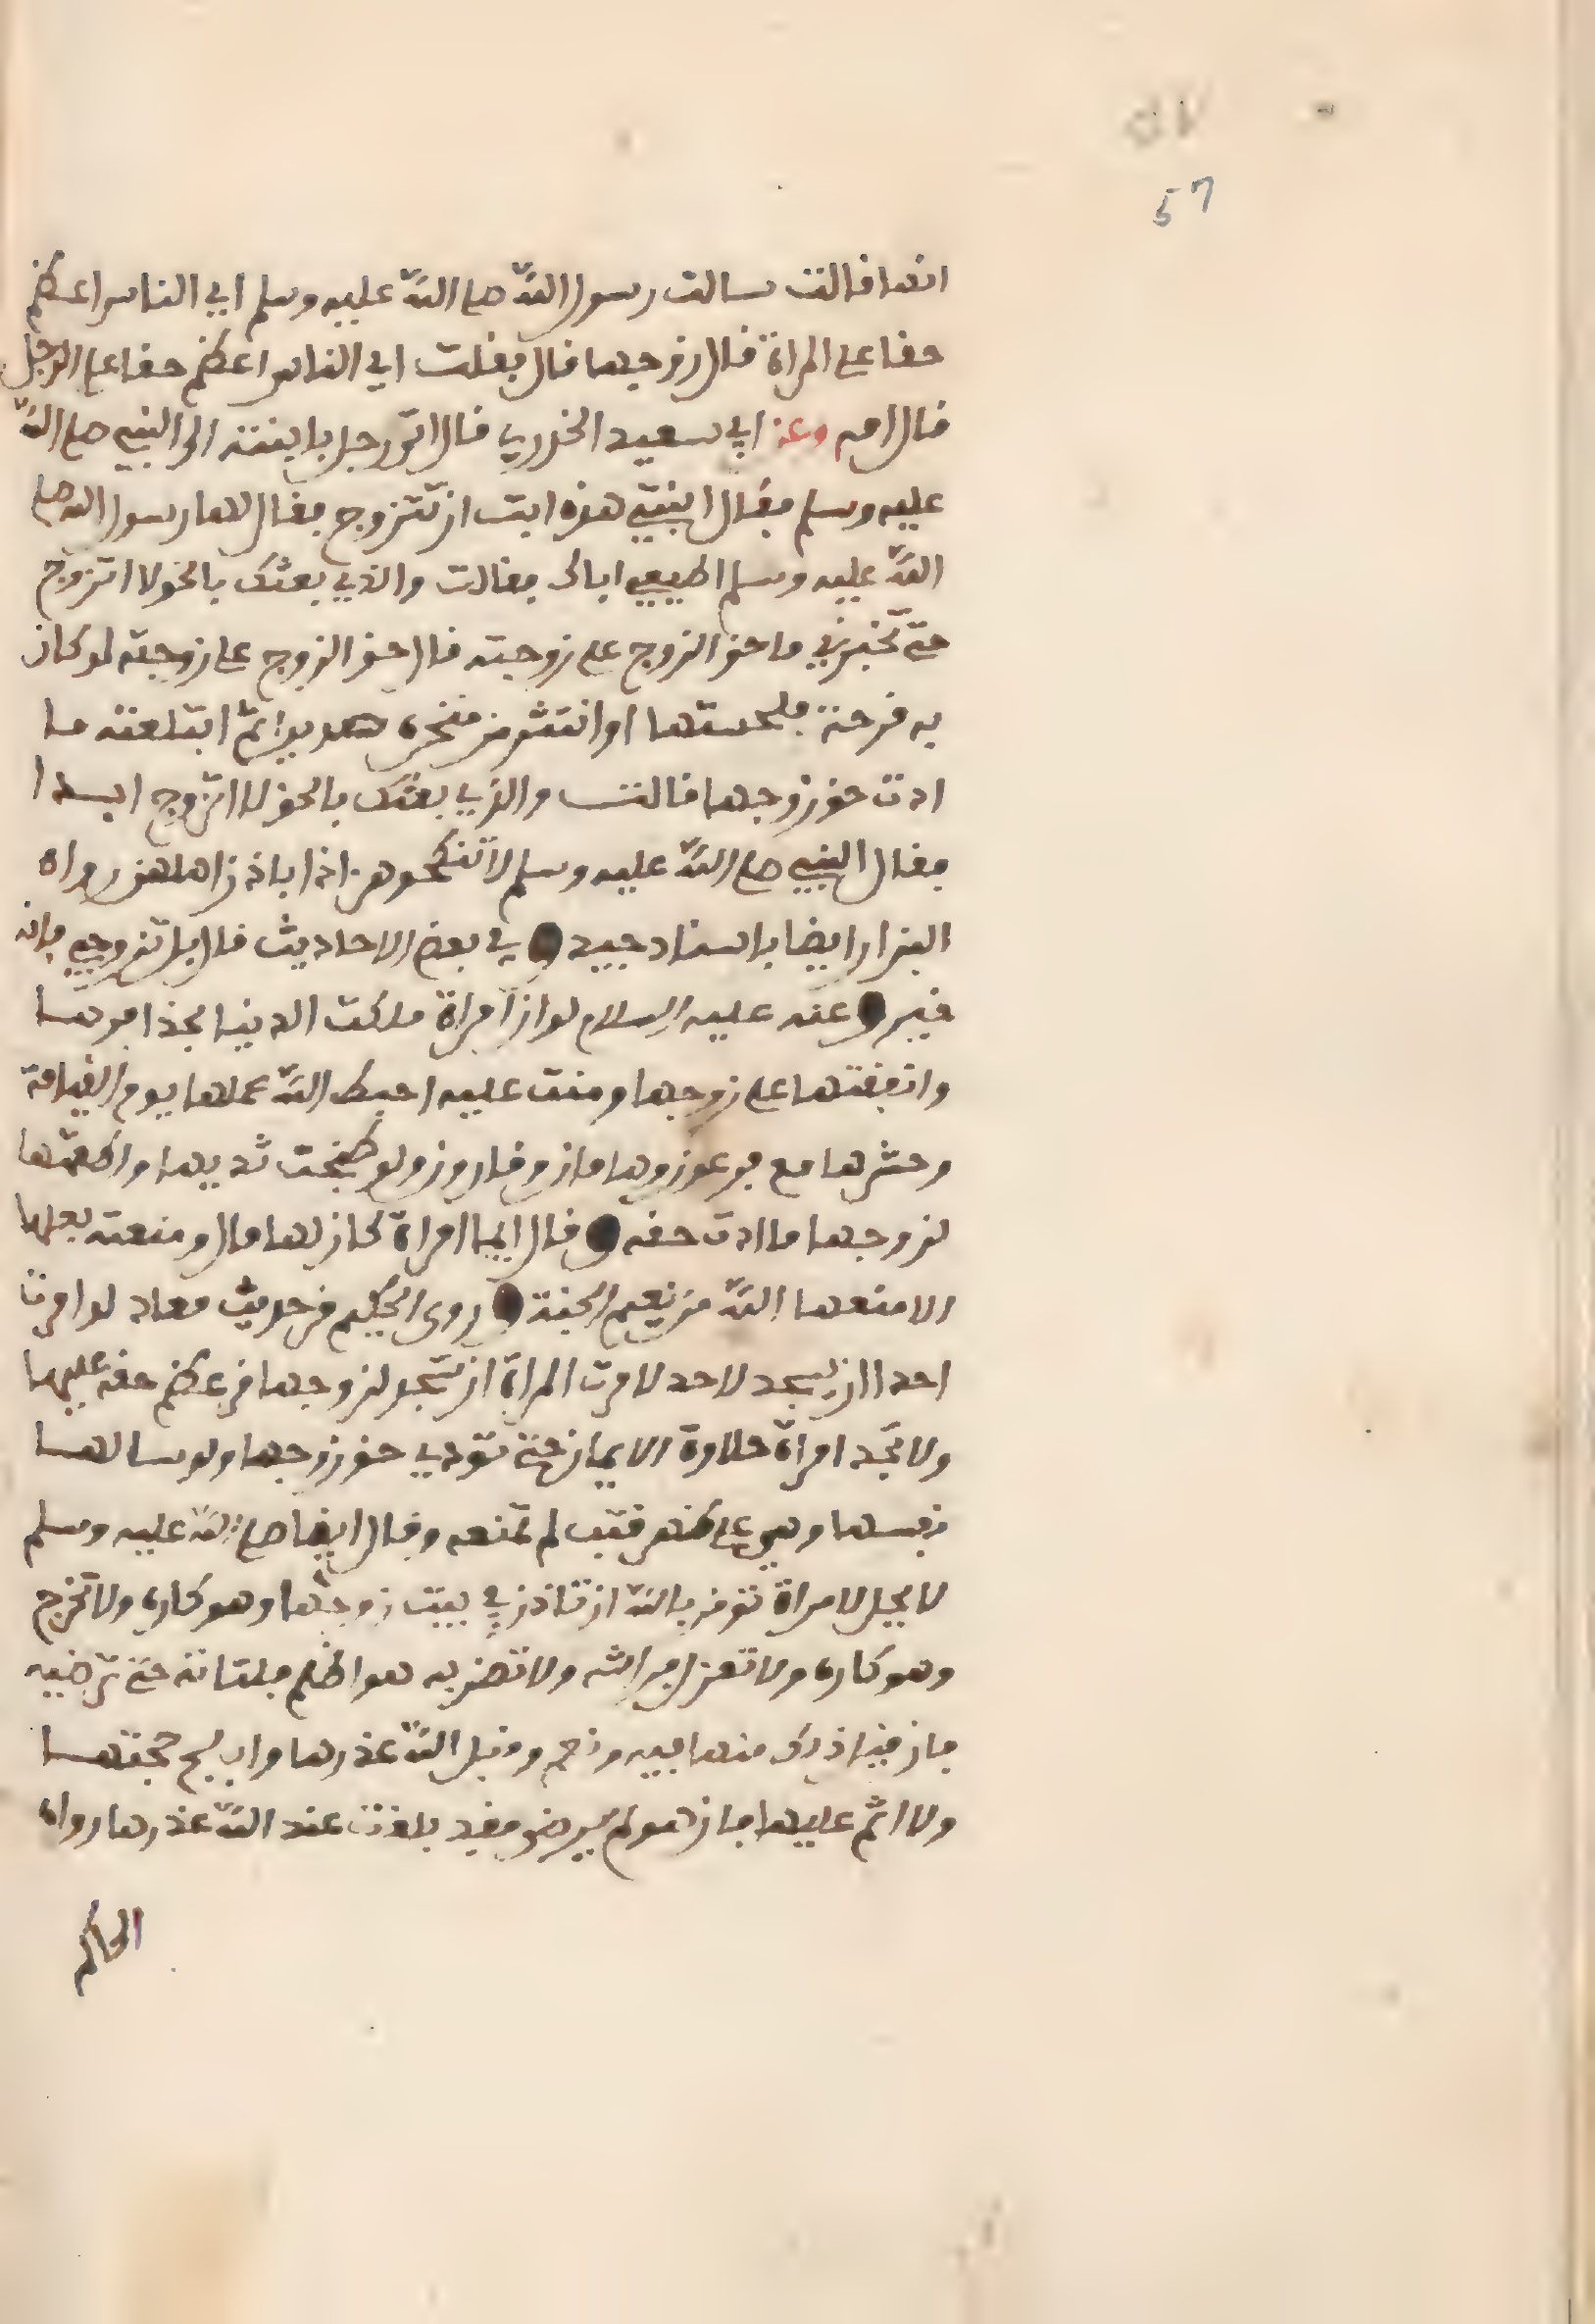 57
انها قالت سالت رسول الله صلى الله عليه وسلم اي الناس اعظم
حقا على المراة قال زوجها قال فقلت اي الناس اعظم حقا على الرجل
قال امه وعن ابي سعيد الخدري قال اتى رجل بابنته الى النبي صلى الله
عليه وسلم فقال ابنتي هذه ابت ان تتزوج فقال لها رسول الله صلى
الله عليه وسلم اطيعي اباك فقالت والذي بعثك بالحق لا اتزوج
حتى تخبرني ما حق الزوج على زوجته قال حق الزوج على زوجته لو كان
به قرحة فلحستها او انتثر من منخره صديدا ثم ابتلعته ما
ادت حق زوجها قالت والذي بعثك بالحق لا اتزوج ابدا
فقال النبي صلى الله عليه وسلم لا تنكحوهن اذا باذن اهلهن رواه
البزار ايضا باسناد جيد وفي بعض الاحاديث قال بل تزوجي فانه
خير وعنه عليه السلام لو ان امراة ملكت الدنيا بحذافرها
وانفقتها على زوجها ومنت عليه احبط الله عملها يوم القيامة
وحشرها مع فرعون وهامان وقارون ولو طبخت ثديها واطعمتها
لزوجها ما ادت حقه وقال ايما امراة كان لها مال ومنعته بعلها
الا منعها الله من نعيم الجنة وروى الحكيم من حديث معاد لو امرت
احدا ان يسجد لاحد لامرت المراة ان تسجد لزوجها من عظم حقه عليها
ولا تجد امراة حلاوة الايمان حتى تؤدي حق زوجها ولو سالها
نفسها وهي على ظهر قتب لم تمنعه وقال ايضا صلى الله عليه وسلم
لا يحل لامراة تؤمن بالله ان تاذن في بيت زوجها وهو كاره ولا تخرج
وهو كاره ولا تعزل فراشه ولا تضربه هو اظلم فلتاته حتى ترضيه
فان قبل ذلك منها فبه ونعم وقبل الله عذرها وافلح حجتها
ولا اثم عليها فان هو لم يرض فقد بلغت عند الله عذرها رواه
الحاكم